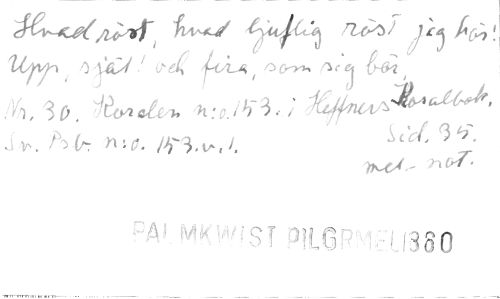 Hvad röst, hvad ljuflig röst jag hör!
Upp, själ! och fira, som sig bör,
Nr. 30. Koralen n:o.153. i Hæffners Koralbok.
Sv. Psb. n:o. 153.v.1. Sid. 35.
mel. not.
PALMKWIST PILGRMEL1880